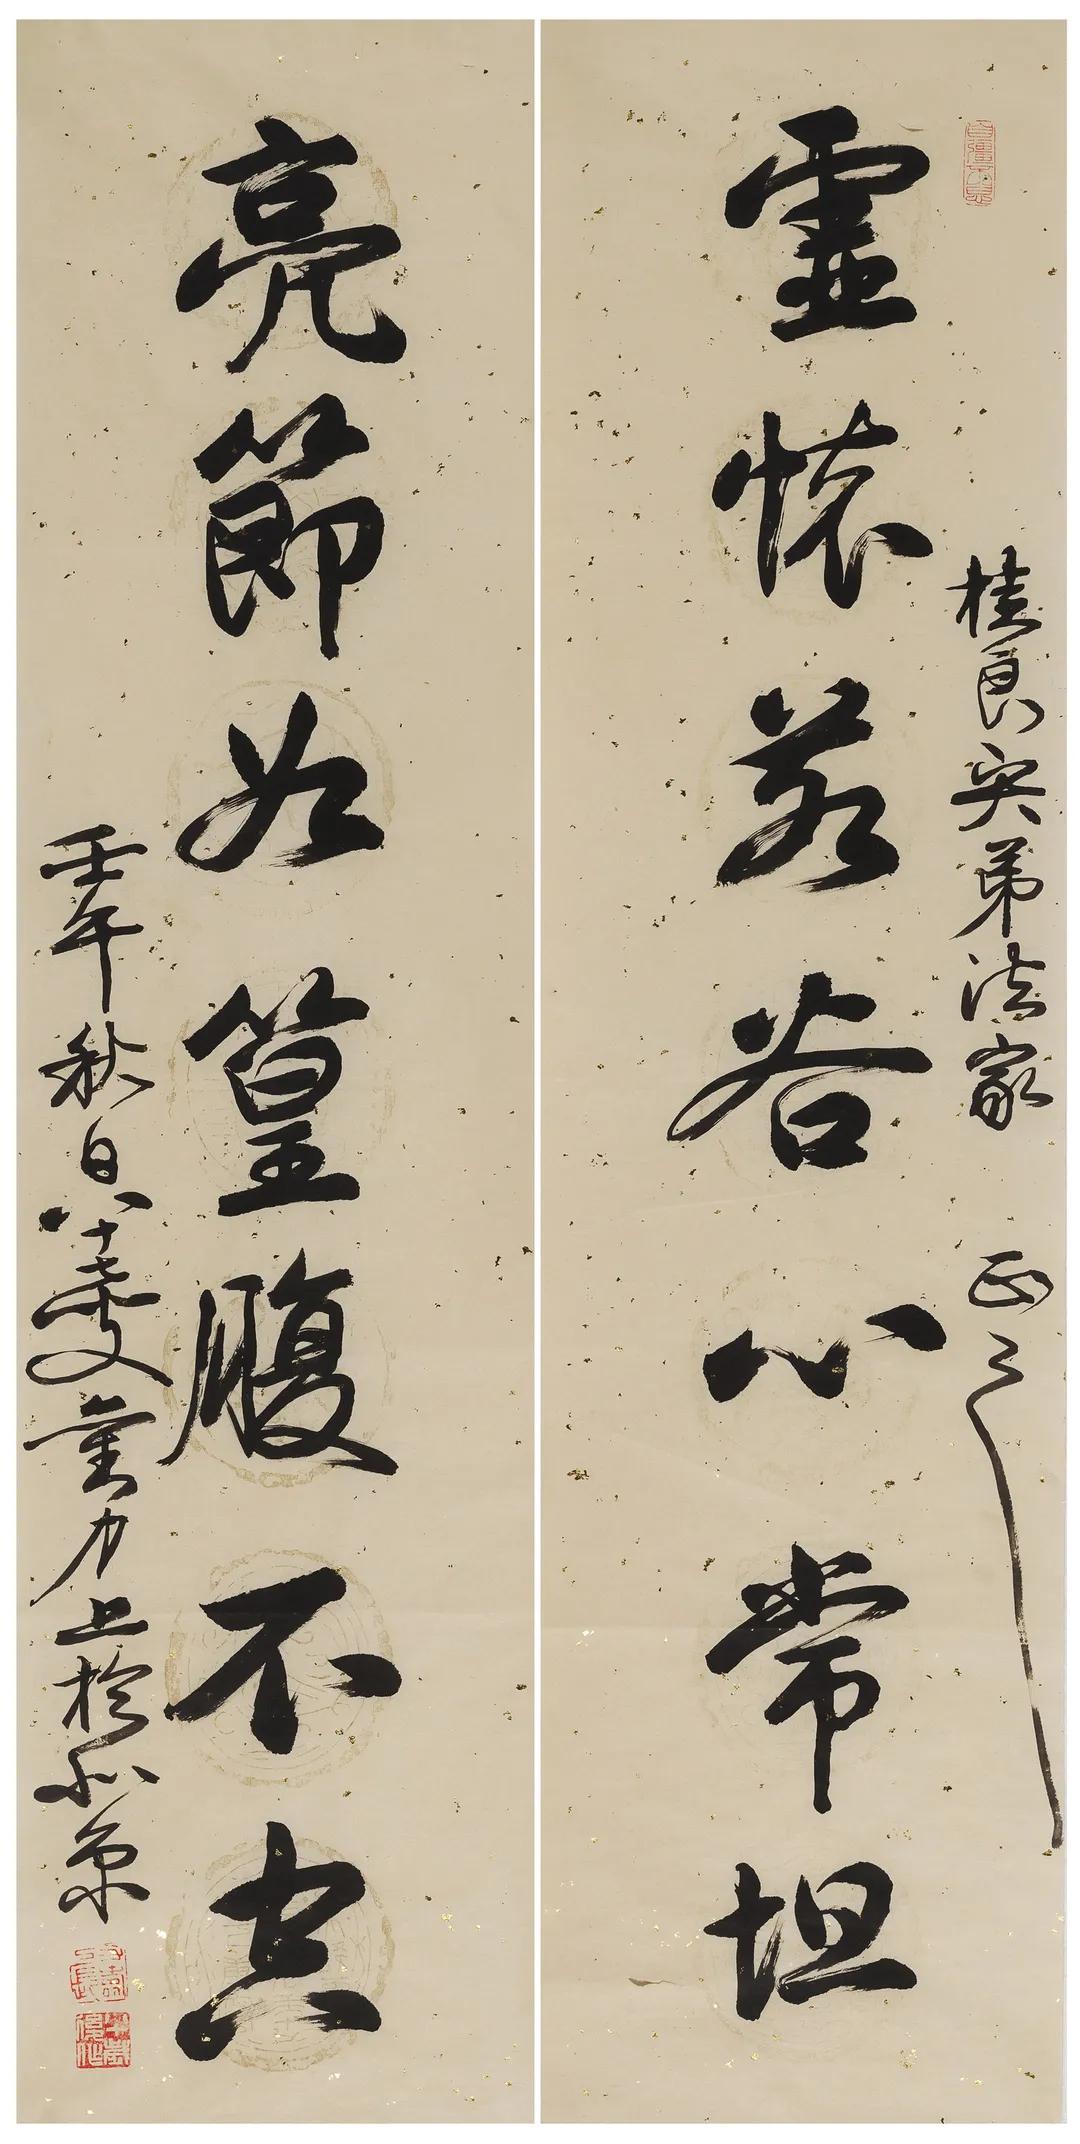 虚懷若谷心常坦
桂良弟法家正之
亮節如篁腹不空
壬午秋日八十叟董力上於北京